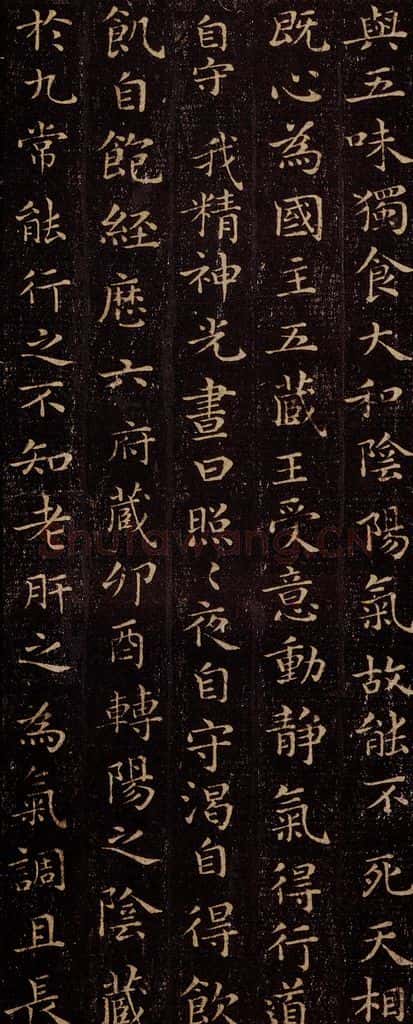 與五味獨食大和陰陽氣故能不死天相
既心為國主五藏王受意動靜氣得行道
自守我精神光晝日照〻夜自守渴自得飲
飢自飽經歷六府藏卯酉轉陽之陰藏
於九常能行之不知老肝之為氣調且長
ShufaWang.CN